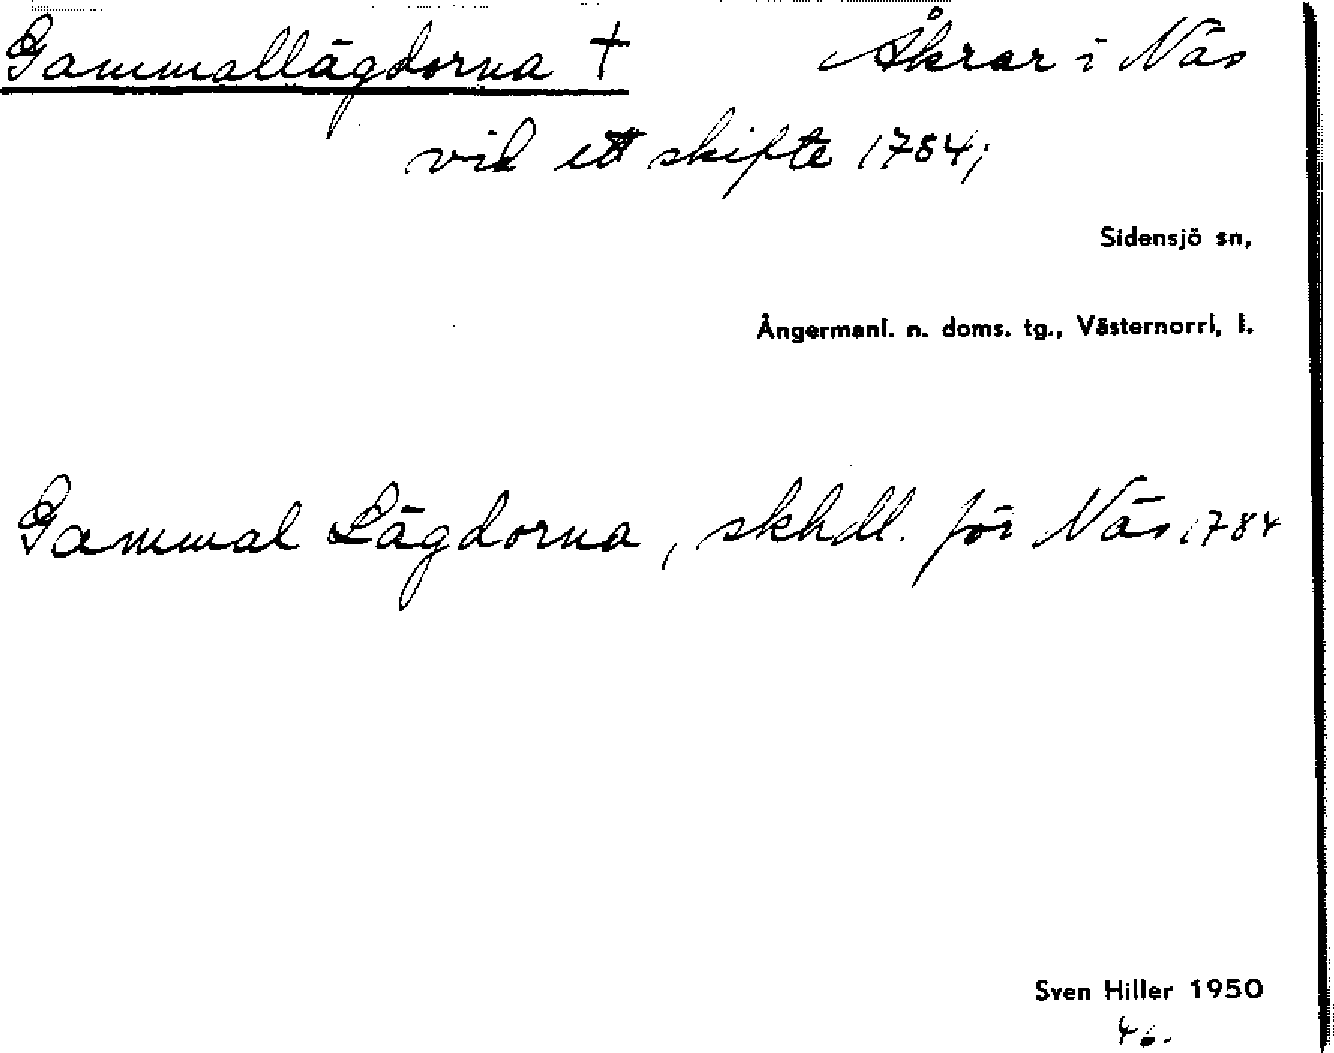 Gammallägdorna † Åkrar i Näs
vid ett skifte 1784;
Sidensjö sn,
Ångermanl. n. doms. tg., Västernorrl, l.
Gammal Lägdorna, skhdl. för Näs 1784
Sven Hiller 1950